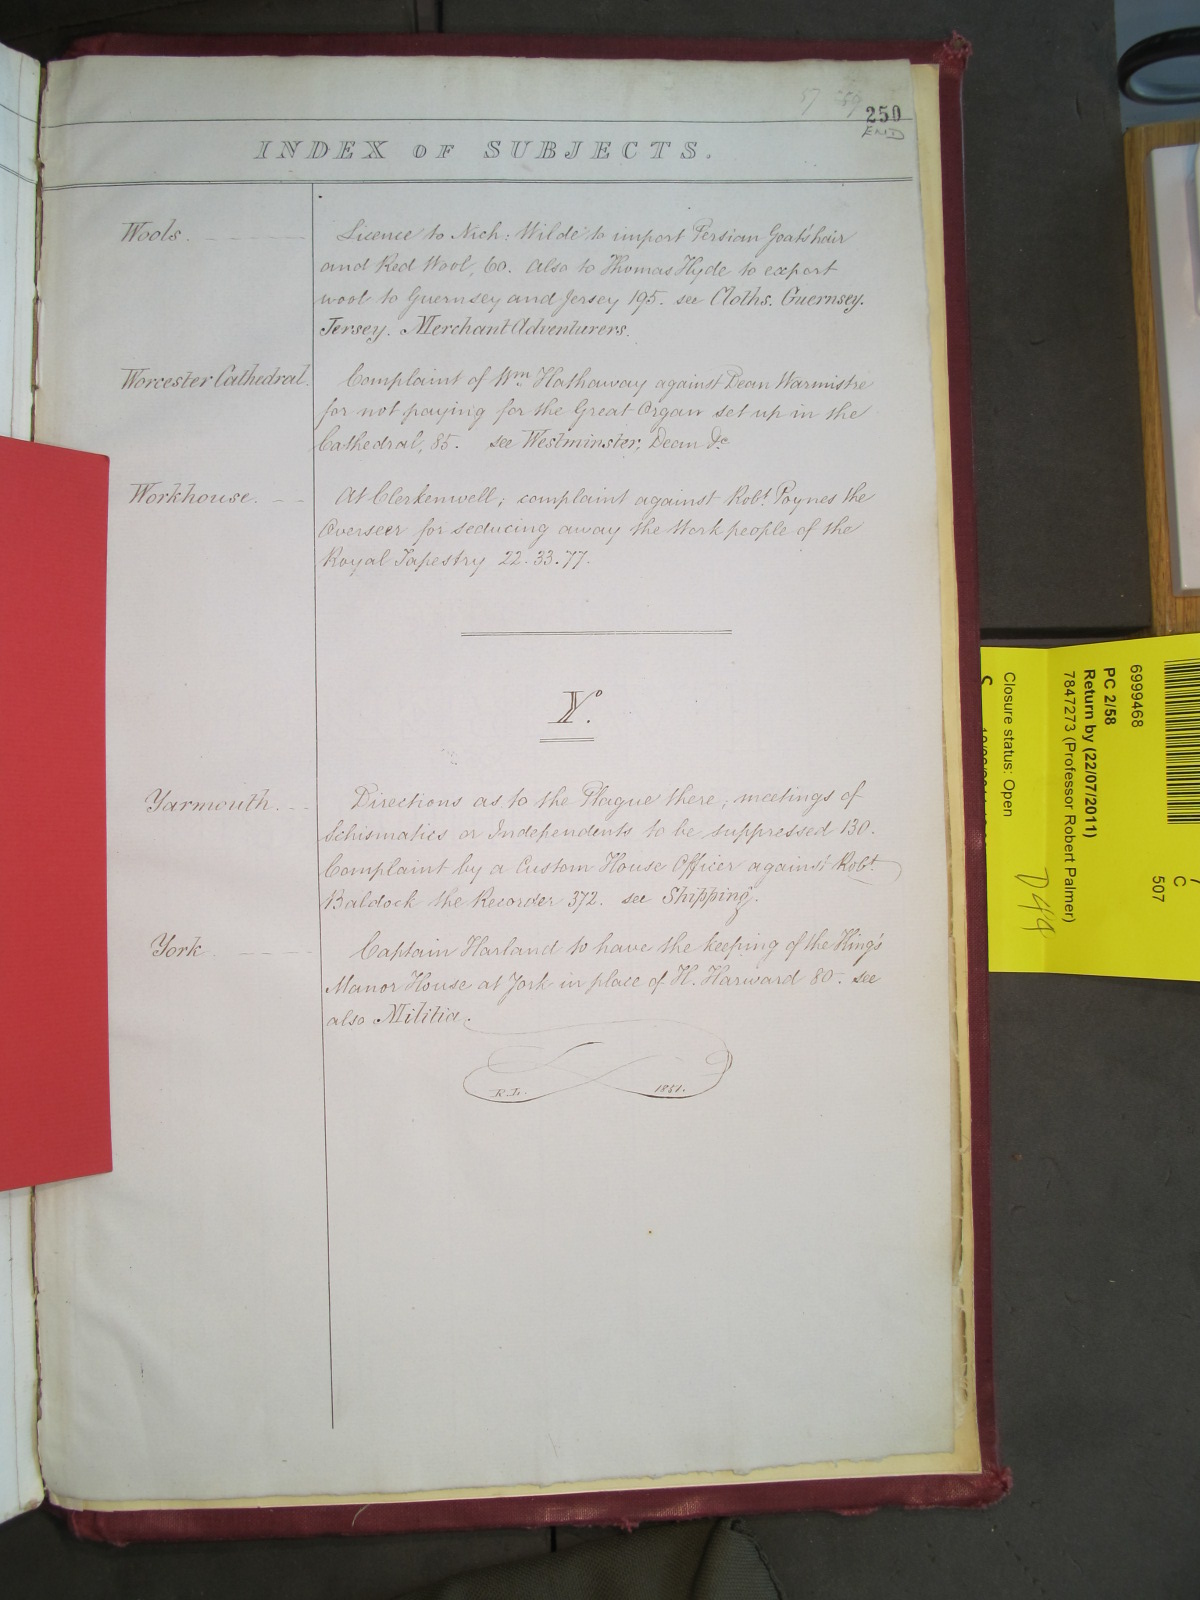 250
END
INDEX OF SUBJECTS.
Wools. Licence to Nich: Wilde to import Persian Goatshair
and Red Wool, 60. Also to Thomas Hyde to export
wool to Guernsey and Jersey 195. see Cloths. Guernsey.
Jersey. Merchant Adventurers.
Worcester Cathedral. Complaint of Wm. Hathaway against Dean Warmistre
for not paying for the Great Organ set up in the
Cathedral, 85. see Westminster, Dean &c
Workhouse. At Clerkenwell; complaint against Robt. Poynes the
Overseer for seducing away the Work people of the
Royal Tapestry 22. 33. 77.
Y.
Yarmouth. Directions as to the Plague there; meetings of
Schismatics or Independents to be suppressed 130.
Complaint by a Custom House Officer against Robt.
Baldock the Recorder 372. see Shipping.
York Captain Harland to have the keeping of the King's
Manor House at York in place of H. Harward 80. see
also Militia.
R.L. 1851.
6999468
PC 2/58
Return by (22/07/2011)
7847273 (Professor Robert Palmer)
Closure status: Open
C
507
D49